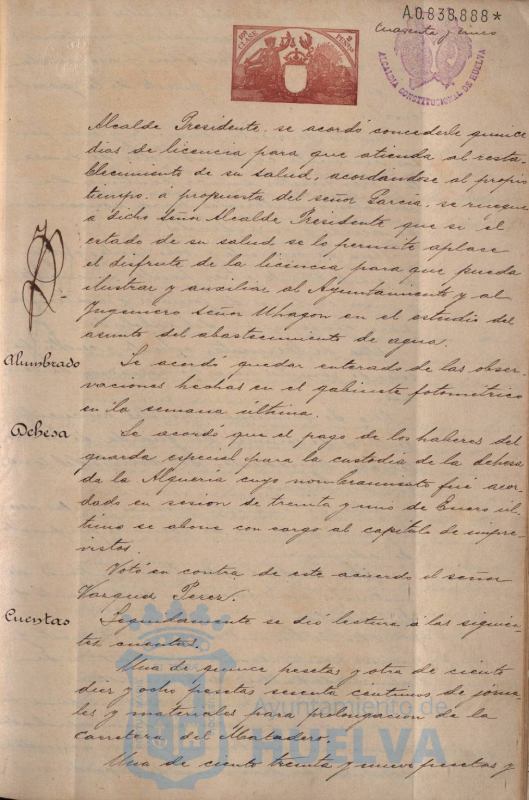 A.0.838,888*
cuarenta y cinco
10ª CLASE
2 PESETAS
ALCALDIA CONSTITUCIONAL DE HUELVA
Alcalde Presidente, se acordó concederle quince
dias de licencia para que atienda al resta-
blecimiento de su salud, acordándose al propio
tiempo, á propuesta del señor Garcia, se ruegue
á dicho señor Alcalde Presidente que si el
estado de su salud se lo permite aplace
el disfrute de la licencia para que pueda
ilustrar y auxiliar al Ayuntamiento y al
Ingeniero señor Uhagon en el estudio del
asunto del abastecimiento de agua.
Alumbrado
Se acordó quedar enterado de las obser-
vaciones hechas en el gabinete fotométrico
en la semana última.
Dehesa
Se acordó que el pago de los haberes del
guarda especial para la custodia de la dehesa
de la Alqueria cuyo nombramiento fué acor-
dado en sesion de treinta y uno de Enero úl-
timo se abone con cargo al capitulo de impre-
vistos.
Votó en contra de este acuerdo el señor
Vargas Perez.
Cuentas
Seguidamente se dió lectura á las siguien-
tes cuentas.
Una de quince pesetas y otra de ciento
diez y ocho pesetas sesenta centimos de jorna-
les y materiales para prolongacion de la
carretera del Matadero.
Una de ciento treinta y nueve pesetas y
Ayuntamiento de
HUELVA